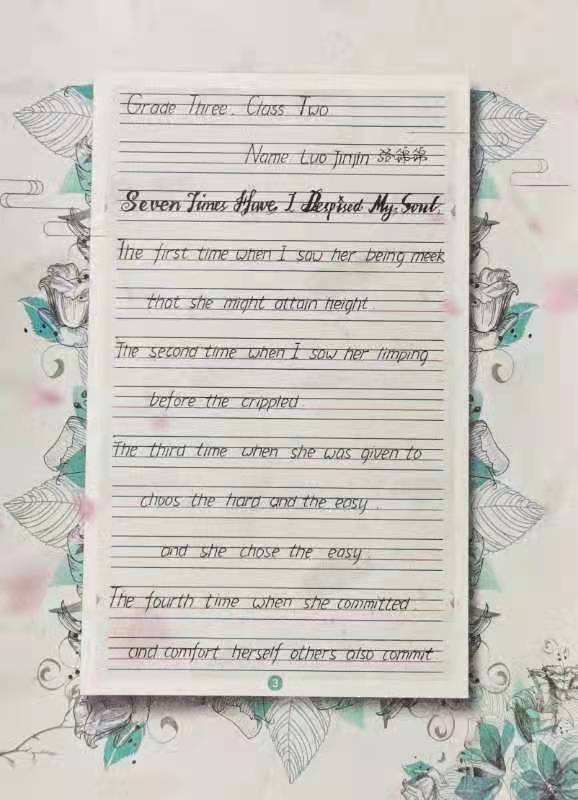 Grade Three. Class Two
Name Luo Jinjin 骆锦锦
Seven Times Have I Despised My Soul.
The first time when I saw her being meek
that she might attain height.
The second time when I saw her limping
before the crippled.
The third time when she was given to
choos the hard and the easy.
and she chose the easy.
The fourth time when she committed
and comfort herself others also commit
3